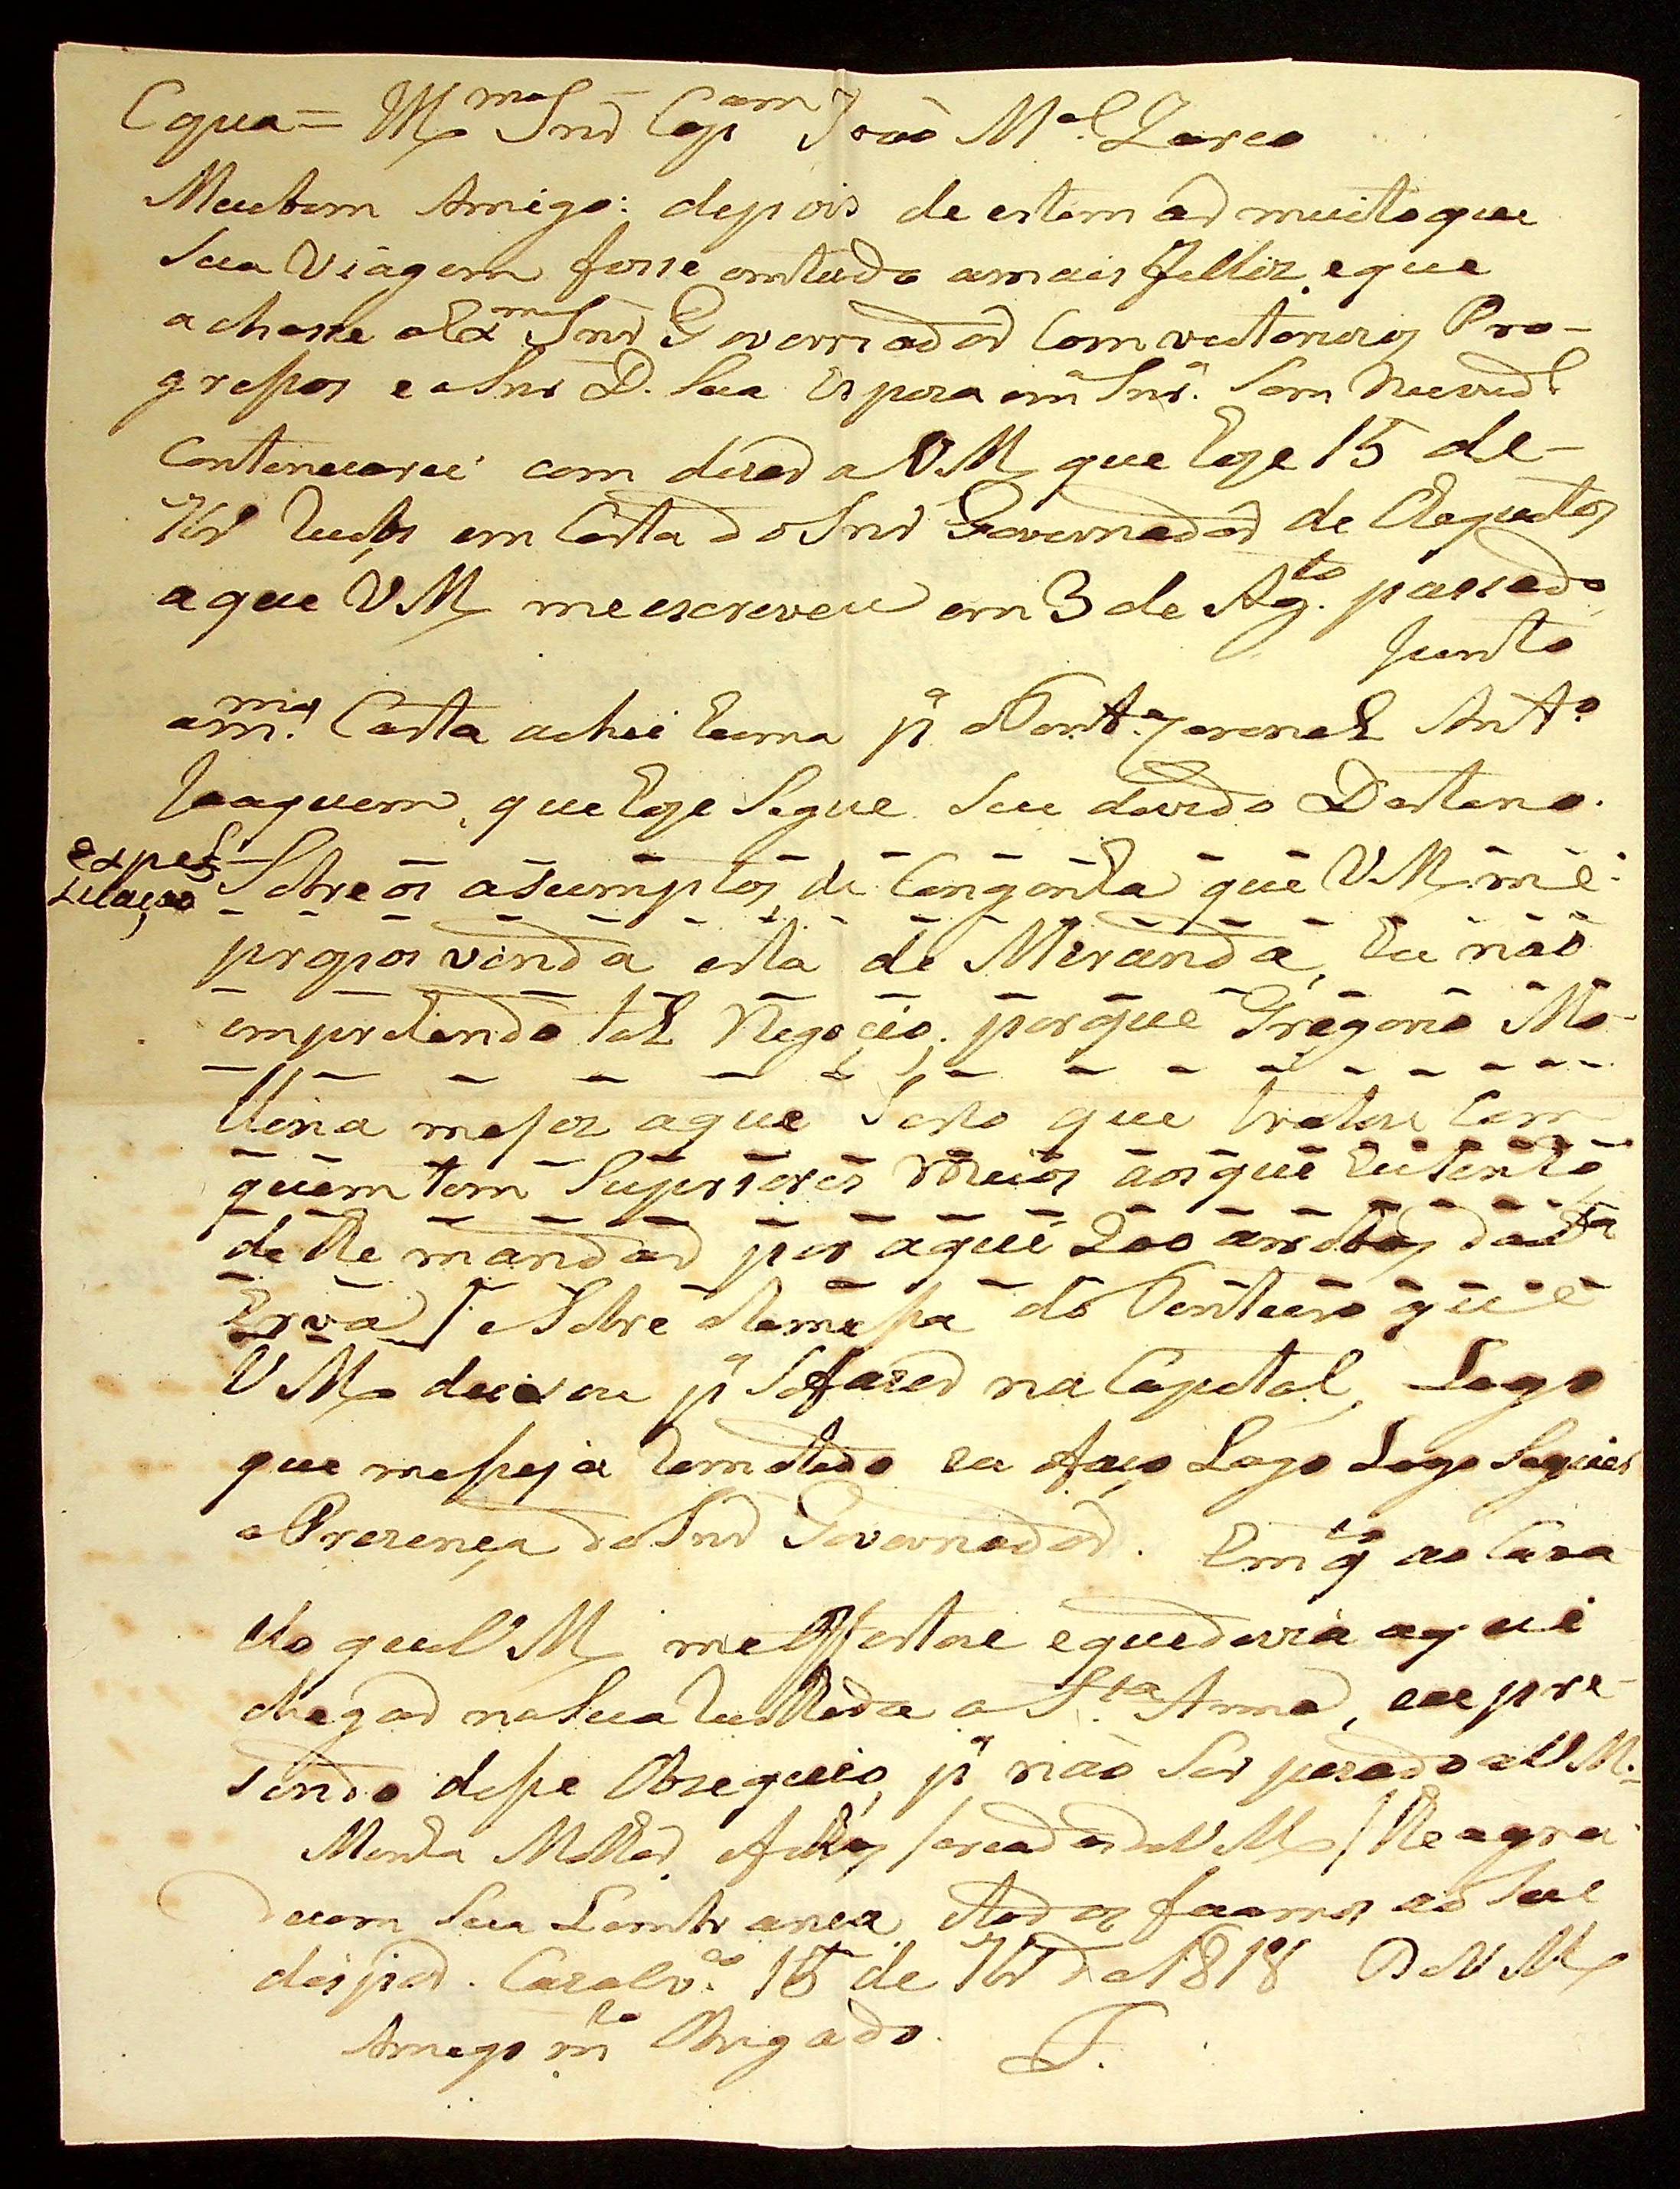 Copia = Mmo Snr Capam João Mel Zarco
Meu bom Amigo: depois de estemar muito que
sua Viagem fosse em tudo a mais felliz, e que
achasse o Exmo Snr Governador Com victoriozos Pro-
gressos e a Snra D. sua Espoza ma Snra. Sem Nuvid.e
Contenuarei com dizer a VM que oje 15 de
7br Recebi em Carta do Snr Governador de Chiquitos
a que VM me escreveu em 3 de Agto. passado,
junto
a ma. Carta achei huma pa o Tente Coronel Anto
Joaquem, que oje Segue seu devido Desteno.
Sobre os asumptos de Congonha que VM me
propos vinda esta de Miranda, Eu não
emprelendo tal Negocio, porque Gregorio Mo-
llina me fez aqui serto que tratase Com
quem tem Superiores meios aos que eu tenho
de lhe mandar por aqui 200 arrobas da da
Erva] Sobre a Remessa do Tenteiro que
VM. deixou pa Se fazer na Capetal, Logo
que me seja Remetedo eu faço Logo Logo Seguir
a Prezença do Snr Governador. Emqto ao Cava
llo que VM me offertase e que deveria aqui
chegar na Sua Rettirada a Sta Anna, eu pre-
sendo desse Obsequio, pa não Ser pezado a VM.
Minha Molher e filhos /creados de VM/ lhe agra-
decem Sua Lembrança, e todos ficamos ao Seu
dispor. Casalvco 15 de 7br de 1818 De VM
Amego mto Obrigado. F.